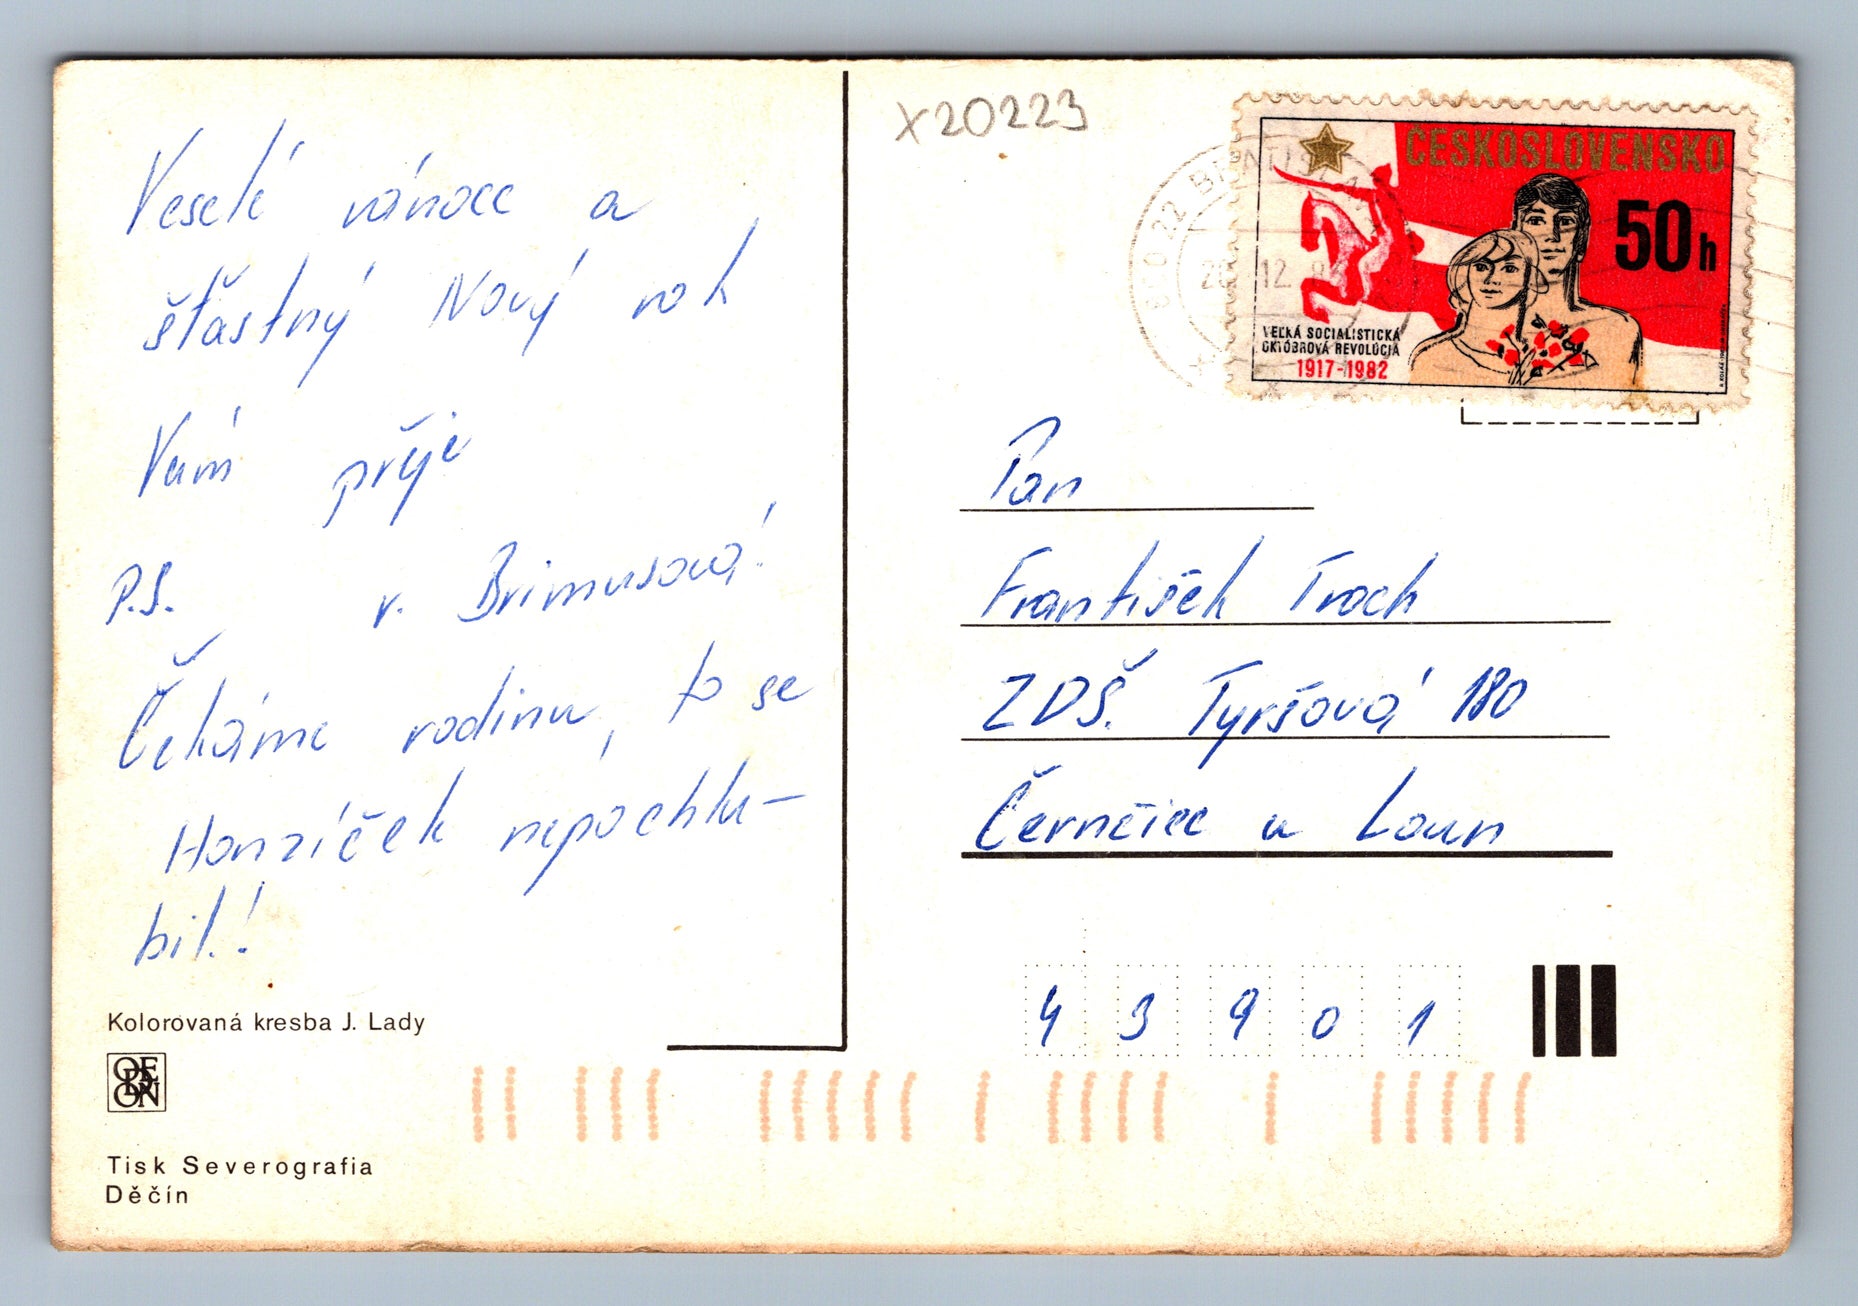 Veselé vánoce a
šťastný Nový rok
Vám přeje
P.S. r. Brimusová!
Čekáme rodinu, to se
Honzíček nepochlu-
bil!
Kolorovaná kresba J. Lady
ODEON
Tisk Severografia
Děčín
X20223
ČESKOSLOVENSKO
50h
VEĽKÁ SOCIALISTICKÁ
OKTÓBROVÁ REVOLÚCIA
1917-1982
12.
Pan
František Troch
ZDŠ. Tyršová 180
Černčice u Loun
43901